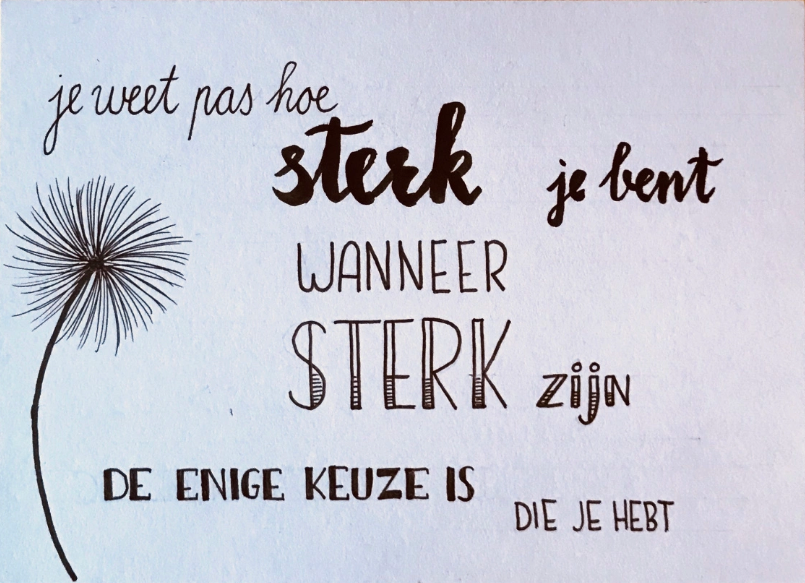 je weet pas hoe
sterk je bent
WANNEER
STERK zijn
DE ENIGE KEUZE IS
DIE JE HEBT